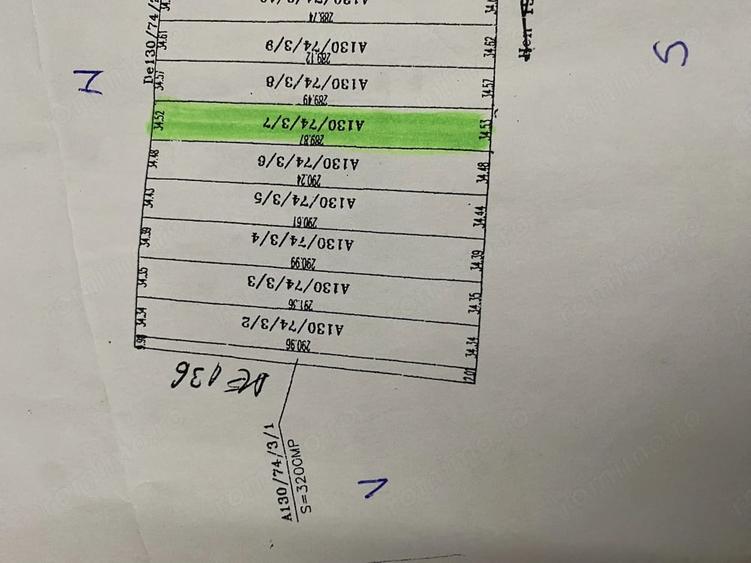 288.74
A130/74/3/9
289.12
A130/74/3/8
289.49
A130/74/3/7
289.87
A130/74/3/6
290.24
A130/74/3/5
290.61
A130/74/3/4
290.99
A130/74/3/3
291.36
A130/74/3/2
290.96
34.61
34.57
34.52
34.48
34.43
34.39
34.35
34.34
34.62
34.57
34.53
34.48
34.44
34.39
34.35
34.34
De130/74/
N
S
V
DE 136
A130/74/3/1
S=3200MP